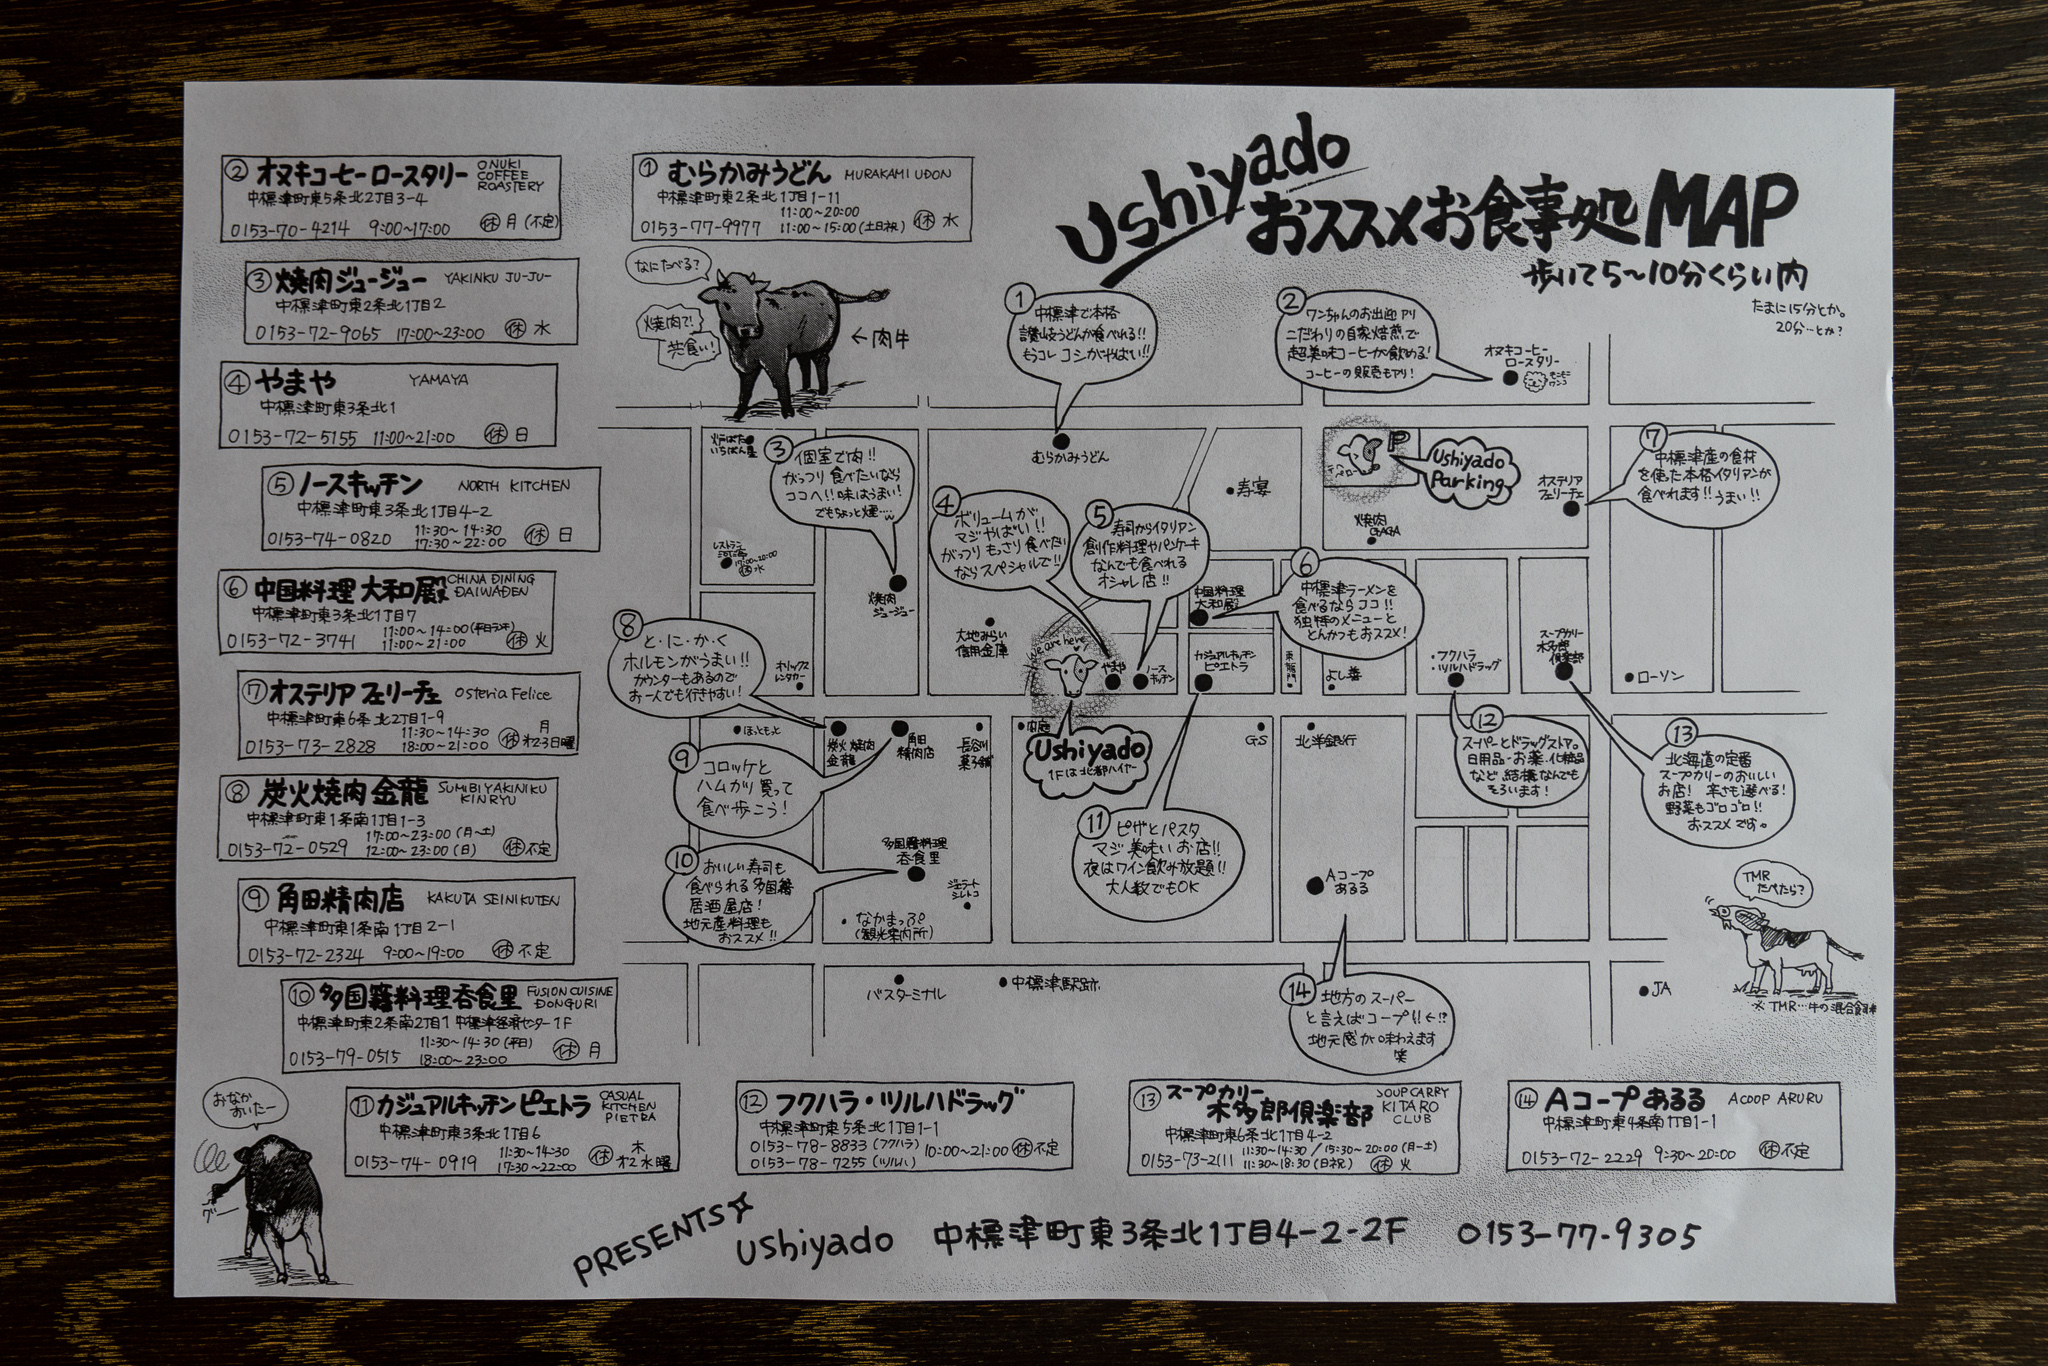 Ushiyado
おススメお食事処MAP
歩いて5〜10分くらい内
たまに15分とか。
20分…とか?
① むらかみうどん MURAKAMI UDON
中標津町東2条北1丁目1-11
11:00〜20:00
0153-77-9977 11:00〜15:00(土日祝) 休 水
② オヌキコーヒーロースタリー ONUKI COFFEE ROASTERY
中標津町東5条北2丁目3-4
0153-70-4214 9:00〜17:00 休 月(不定)
③ 焼肉ジュージュー YAKINKU JU-JU-
中標津町東2条北1丁目2
0153-72-9065 17:00〜23:00 休 水
④ やまや YAMAYA
中標津町東3条北1
0153-72-5155 11:00〜21:00 休 日
⑤ ノースキッチン NORTH KITCHEN
中標津町東3条北1丁目4-2
11:30〜14:30
0153-74-0820 17:30〜22:00 休 日
⑥ 中国料理 大和殿 CHINA DINING DAIWADEN
中標津町東3条北1丁目7
11:00〜14:00(平日ランチ)
0153-72-3741 11:00〜21:00 休 火
⑦ オステリア フェリーチェ Osteria Felice
中標津町東6条北2丁目1-9
11:30〜14:30
0153-73-2828 18:00〜21:00 休 月 第2・3日曜
⑧ 炭火焼肉 金龍 SUMIBIYAKINIKU KINRYU
中標津町東1条南1丁目1-3
17:00〜23:00(月〜土)
0153-72-0529 12:00〜23:00(日) 休 不定
⑨ 角田精肉店 KAKUTA SEINIKUTEN
中標津町東1条南1丁目2-1
0153-72-2324 9:00〜19:00 休 不定
⑩ 多国籍料理呑食里 FUSION CUISINE DONGURI
中標津町東2条南2丁目1 中標津経済センター1F
11:30〜14:30(平日)
0153-79-0515 18:00〜23:00 休 月
⑪ カジュアルキッチンピエトラ CASUAL KITCHEN PIETRA
中標津町東3条北1丁目6
11:30〜14:30
0153-74-0919 17:30〜22:00 休 木 第2水曜
⑫ フクハラ・ツルハドラッグ
中標津町東5条北1丁目1-1
0153-78-8833(フクハラ)
0153-78-7255(ツルハ) 10:00〜21:00 休 不定
⑬ スープカリー木多郎倶楽部 SOUP CARRY KITARO CLUB
中標津町東6条北1丁目4-2
11:30〜14:30/15:30〜20:00(月〜土)
0153-73-2111 11:30〜18:30(日祝) 休 火
⑭ Aコープあるる ACOOP ARURU
中標津町東4条南1丁目1-1
0153-72-2229 9:30〜20:00 休 不定
なにたべる?
焼肉で!
共食い!
←肉牛
①
中標津で本格
讃岐うどんが食べれる!!
もうコレ コシがやばい!!
むらかみうどん
②
ワンちゃんのお出迎アリ
こだわりの自家焙煎で
超美味コーヒーが飲める!
コーヒーの販売もアリ!
オヌキコーヒー
ロースタリー
モコモコ
ワンコ
③
個室で肉!!
がっつり食べたいなら
ココへ!!味はうまい!
でもちょっと煙…
焼肉
ジュージュー
④
ボリュームが
マジやばい!!
がっつりもっさり食べたい
ならスペシャルで!!
やまや
⑤
寿司からイタリアン
創作料理やパンケーキ
なんでも食べれる
オシャレ店!!
ノース
キッチン
⑥
中標津ラーメンを
食べるならココ!!
独特のメニューと
とんかつもおススメ!
中国料理
大和殿
⑦
中標津産の食材
を使った本格イタリアンが
食べれます!!うまい!!
オステリア
フェリーチェ
Ushiyado
Parking
P
焼肉
GAGA
寿宴
炉ばた
いちばん星
レストラン
17:00〜20:00
休 水
大地みらい
信用金庫
オリックス
レンタカー
we are here
Ushiyado
1Fは北都ハイヤー
カジュアルキッチン
ピエトラ
よし善
・フクハラ
・ツルハドラッグ
スープカリー
木多郎
倶楽部
ローソン
⑧
と・に・か・く
ホルモンがうまい!!
カウンターもあるので
お一人でも行きやすい!
炭火焼肉
金龍
ほっともっと
⑨
コロッケと
ハムカツ買って
食べ歩こう!
角田
精肉店
長谷川
菓子舗
G.S
北洋銀行
⑩
おいしい寿司も
食べられる多国籍
居酒屋店!
地元産料理も
おススメ!!
多国籍料理
呑食里
ジェラート
シレトコ
なかまっぷ
(観光案内所)
⑪
ピザとパスタ
マジ美味いお店!!
夜はワイン飲み放題!!
大人数でもOK
⑫
スーパーとドラッグストア。
日用品・お薬、化粧品
など結構なんでも
そろいます!
⑬
北海道の定番
スープカリーのおいしい
お店! 辛さも選べる!
野菜もゴロゴロ!!
おススメです。
Aコープ
あるる
⑭
地方のスーパー
と言えばコープ!!←!?
地元感が味わえます
笑
バスターミナル
中標津駅跡
JA
TMR
たべたら?
※TMR…牛の混合食
おなか
すいたー
PRESENTS
Ushiyado 中標津町東3条北1丁目4-2-2F 0153-77-9305